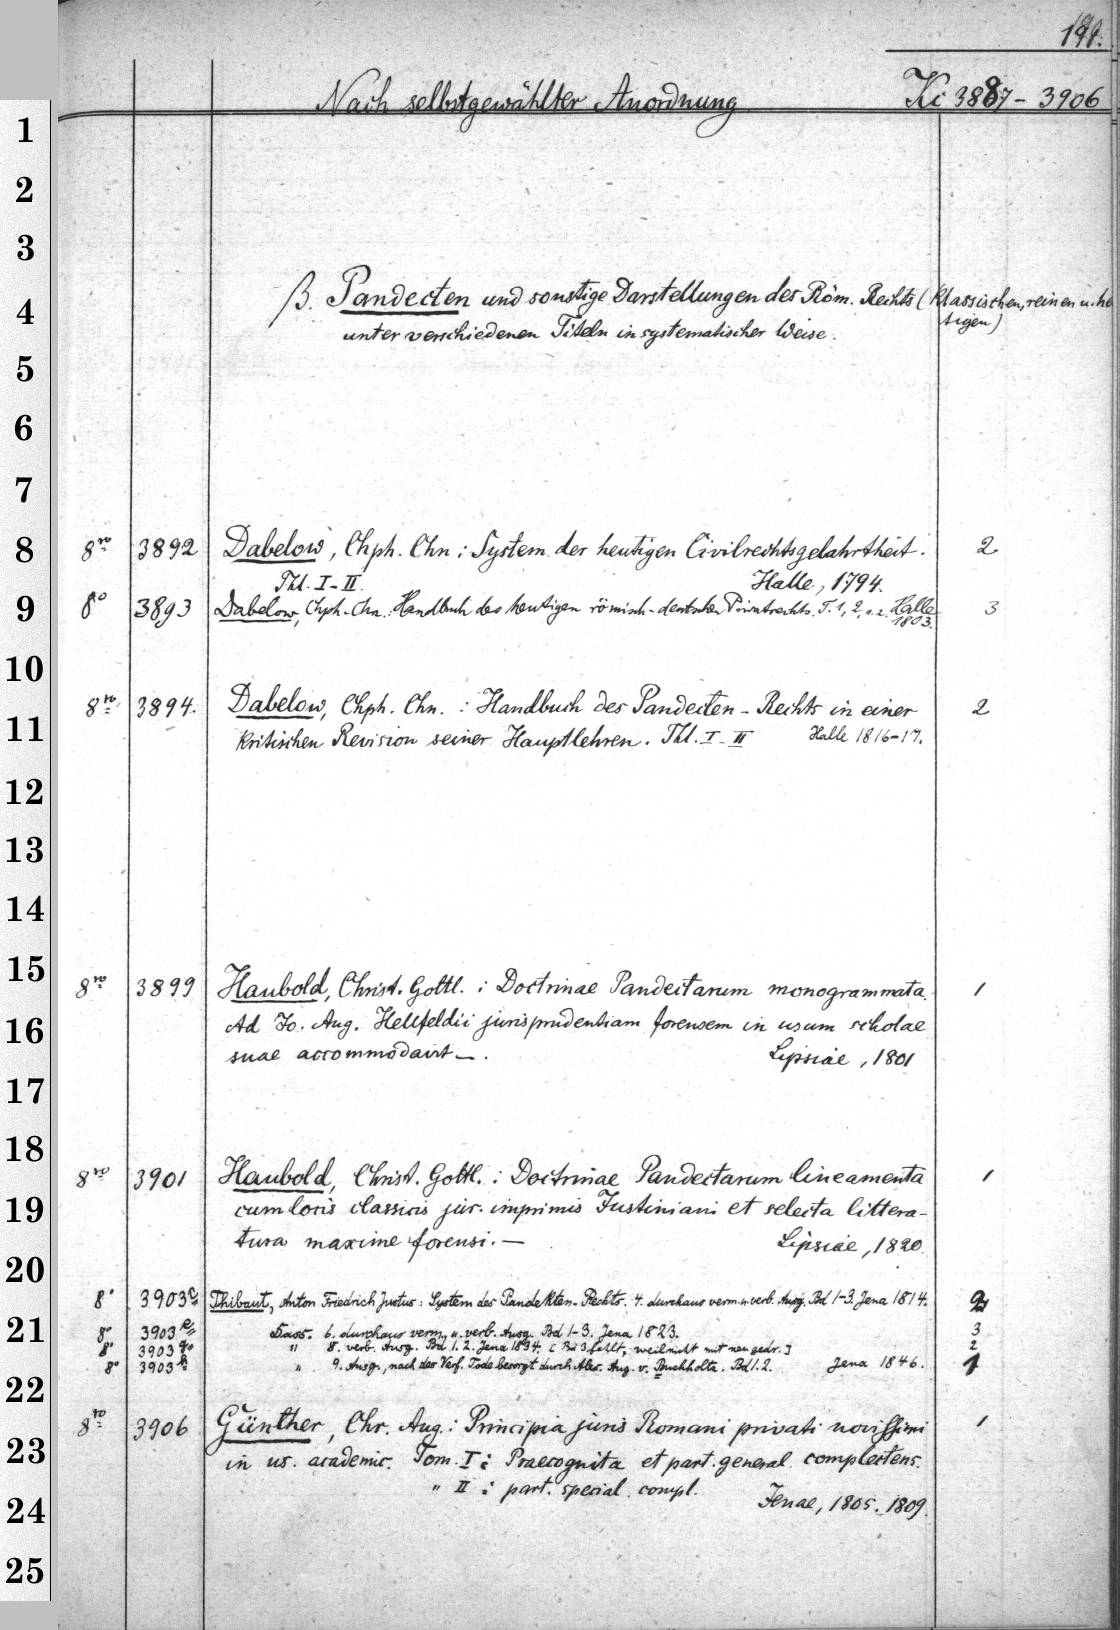 191.
Nach selbstgewählter Anordnung Ki 3887 - 3906
1
2
3
β. Pandecten und sonstige Darstellungen des Röm. Rechts (klassischen, reinen u. heu
4
tigen)
unter verschiedenen Titeln in systematischer Weise.
5
6
7
8 8ro 3892 Dabelow, Chph. Chn: System der heutigen Civilrechtsgelahrtheit. 2
Thl. I-II. Halle, 1794.
9 8o 3893 Dabelow, Chph. Chn.: Handbuch des heutigen römisch-deutschen Privatrechts. T. 1, 2, Halle 3
1803.
10
8ro 3894. Dabelow, Chph. Chn. : Handbuch des Pandecten - Rechts in einer 2
11 kritischen Revision seiner Hauptlehren. Thl. I-II Halle 1816-17.
12
13
14
15 8ro 3899 Haubold, Christ. Gottl. : Doctrinae Pandectarum monogrammata. 1
16 Ad Jo. Aug. Hellfeldii jurisprudentiam forensem in usum scholae
suae accommodavit —. Lipsiae, 1801
17
18 8ro 3901 Haubold, Christ. Gottl. : Doctrinae Pandectarum lineamenta 1
19 cum locis classicis jur. imprimis Justiniani et selecta littera-
tura maxime forensi. — Lipsiae, 1820.
20
8° 3903c Thibaut, Anton Friedrich Justus: System des Pandekten-Rechts. 4. durchaus verm. u. verb. Ausg. Bd 1-3. Jena 1814. 2
21 8° 3903e Dass. 6. durchaus verm. u. verb. Ausg. Bd 1-3. Jena 1823. 3
8° 3903g " 8. verb. Ausg. Bd 1. 2. Jena 1834. [Bd 3 fehlt, weil nicht mit neu gedr.] 2
8° 3903h " 9. Ausg., nach des Verf. Tode besorgt durch Alex. Aug. v. Buchholtz. Bd 1. 2. Jena 1846. 1
22
8ro 3906 Günther, Chr. Aug.: Principia juris Romani privati novissimi 1
23 in us. academic. Tom. I: Praecognita et part. general. complectens.
" II: part. special. compl.
24 Jenae, 1805. 1809.
25